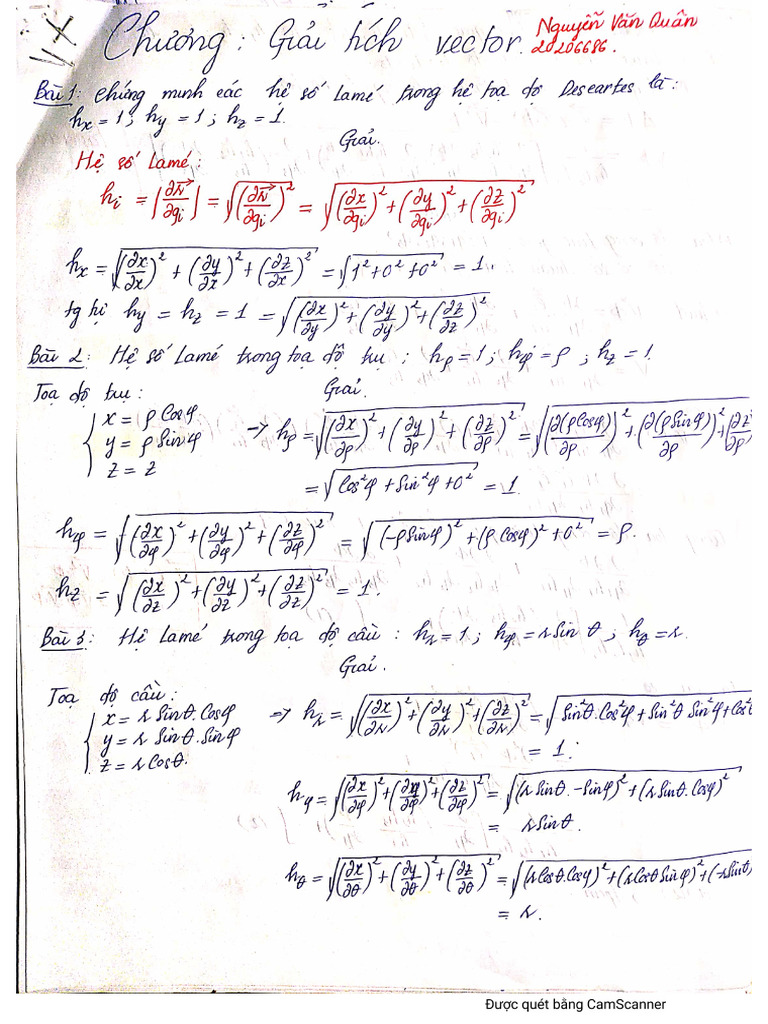 Chương: Giải tích vector.
Nguyễn Văn Quân
20206686.
Bài 1: Chứng minh các hệ số Lamé trong hệ toạ độ Descartes là:
hx = 1; hy = 1; hz = 1.
Giải.
Hệ số Lamé:
hi = |∂r⃗/∂qi| = √((∂r⃗/∂qi)²) = √((∂x/∂qi)² + (∂y/∂qi)² + (∂z/∂qi)²)
hx = √((∂x/∂x)² + (∂y/∂x)² + (∂z/∂x)²) = √(1² + 0² + 0²) = 1.
tg tự hy = hz = 1 = √((∂x/∂y)² + (∂y/∂y)² + (∂z/∂z)²)
Bài 2: Hệ số Lamé trong toạ độ trụ: hρ = 1; hφ = ρ; hz = 1.
Giải.
Toạ độ trụ:
x = ρ Cosφ
y = ρ Sinφ
z = z
-> hρ = √((∂x/∂ρ)² + (∂y/∂ρ)² + (∂z/∂ρ)²) = √((∂(ρCosφ)/∂ρ)² + (∂(ρSinφ)/∂ρ)² + (∂z/∂ρ)
= √(Cos²φ + Sin²φ + 0²) = 1.
hφ = √((∂x/∂φ)² + (∂y/∂φ)² + (∂z/∂φ)²) = √((-ρSinφ)² + (ρCosφ)² + 0²) = ρ.
hz = √((∂x/∂z)² + (∂y/∂z)² + (∂z/∂z)²) = 1.
Bài 3: Hệ Lamé trong toạ độ cầu: hr = 1; hφ = rSinθ; hθ = r.
Giải.
Toạ độ cầu:
x = r Sinθ.Cosφ
y = r Sinθ.Sinφ
z = rCosθ.
=> hr = √((∂x/∂r)² + (∂y/∂r)² + (∂z/∂r)²) = √(Sin²θ.Cos²φ + Sin²θ Sin²φ + Cos²θ
= 1.
hφ = √((∂x/∂φ)² + (∂y/∂φ)² + (∂z/∂φ)²) = √((rSinθ.-Sinφ)² + (rSinθ.Cosφ)²)
= rSinθ.
hθ = √((∂x/∂θ)² + (∂y/∂θ)² + (∂z/∂θ)²) = √((rCosθ.Cosφ)² + (rCosθSinφ)² + (-rSinθ)
= r.
Được quét bằng CamScanner